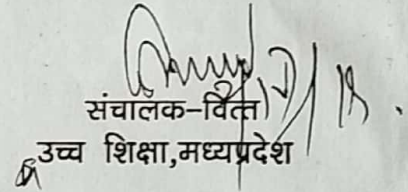 संचालक-वित्त
उच्च शिक्षा,मध्यप्रदेश